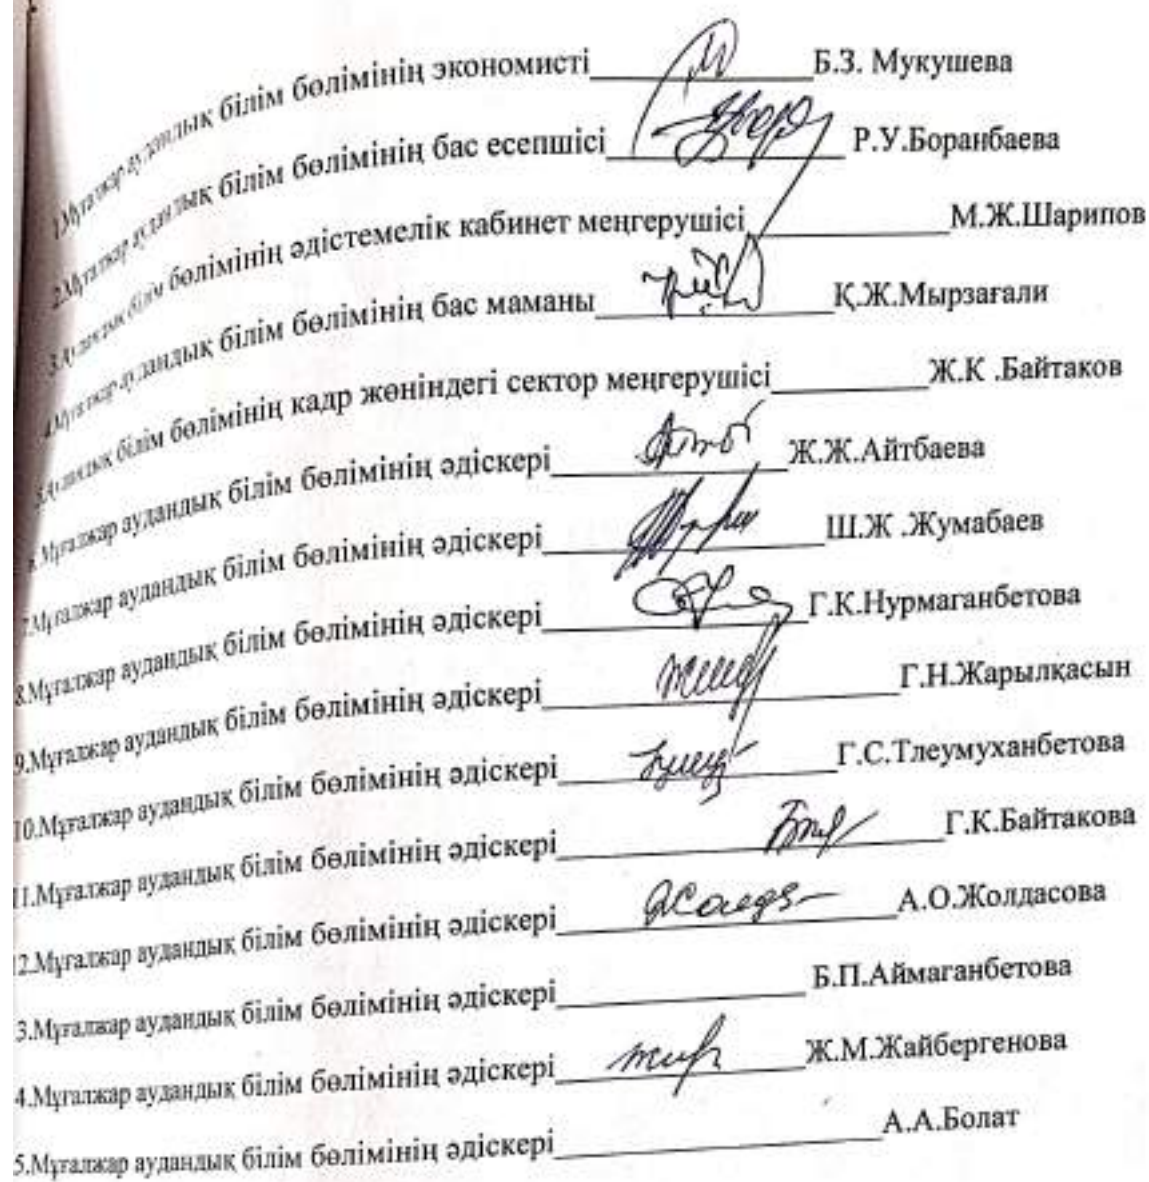 1.Мұғалжар аудандық білім бөлімінің экономисті Б.З. Мукушева
2.Мұғалжар аудандық білім бөлімінің бас есепшісі Р.У.Боранбаева
3.Аудандық білім бөлімінің әдістемелік кабинет меңгерушісі М.Ж.Шарипов
4.Мұғалжар аудандық білім бөлімінің бас маманы Қ.Ж.Мырзағали
5.Аудандық білім бөлімінің кадр жөніндегі сектор меңгерушісі Ж.К .Байтаков
Мұғалжар аудандық білім бөлімінің әдіскері Ж.Ж.Айтбаева
7.Мұғалжар аудандық білім бөлімінің әдіскері Ш.Ж .Жумабаев
8.Мұғалжар аудандық білім бөлімінің әдіскері Г.К.Нурмаганбетова
9.Мұғалжар аудандық білім бөлімінің әдіскері Г.Н.Жарылқасын
10.Мұғалжар аудандық білім бөлімінің әдіскері Г.С.Тлеумуханбетова
11.Мұғалжар аудандық білім бөлімінің әдіскері Г.К.Байтакова
2.Мұғалжар аудандық білім бөлімінің әдіскері А.О.Жолдасова
3.Мұғалжар аудандық білім бөлімінің әдіскері Б.П.Аймаганбетова
4.Мұғалжар аудандық білім бөлімінің әдіскері Ж.М.Жайбергенова
5.Мұғалжар аудандық білім бөлімінің әдіскері А.А.Болат